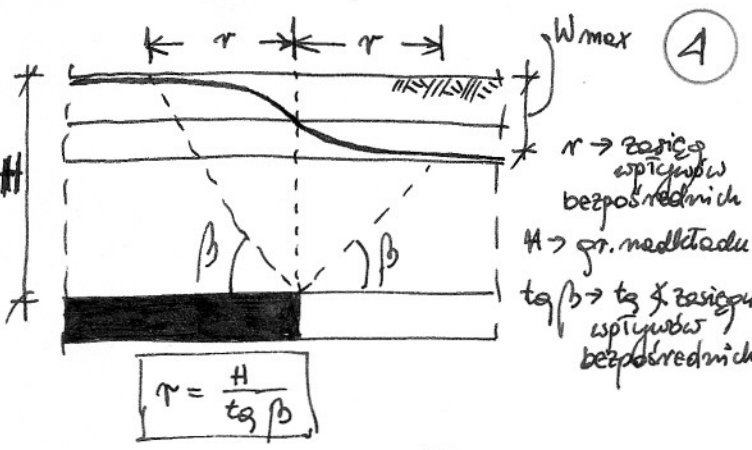 r r
Wmax
1
H
r → zasięg
wpływów
bezpośrednich
H → gr. nadkładu
β β
tg β → tg ∢ zasięgu
wpływów
bezpośrednich
r = H / tg β